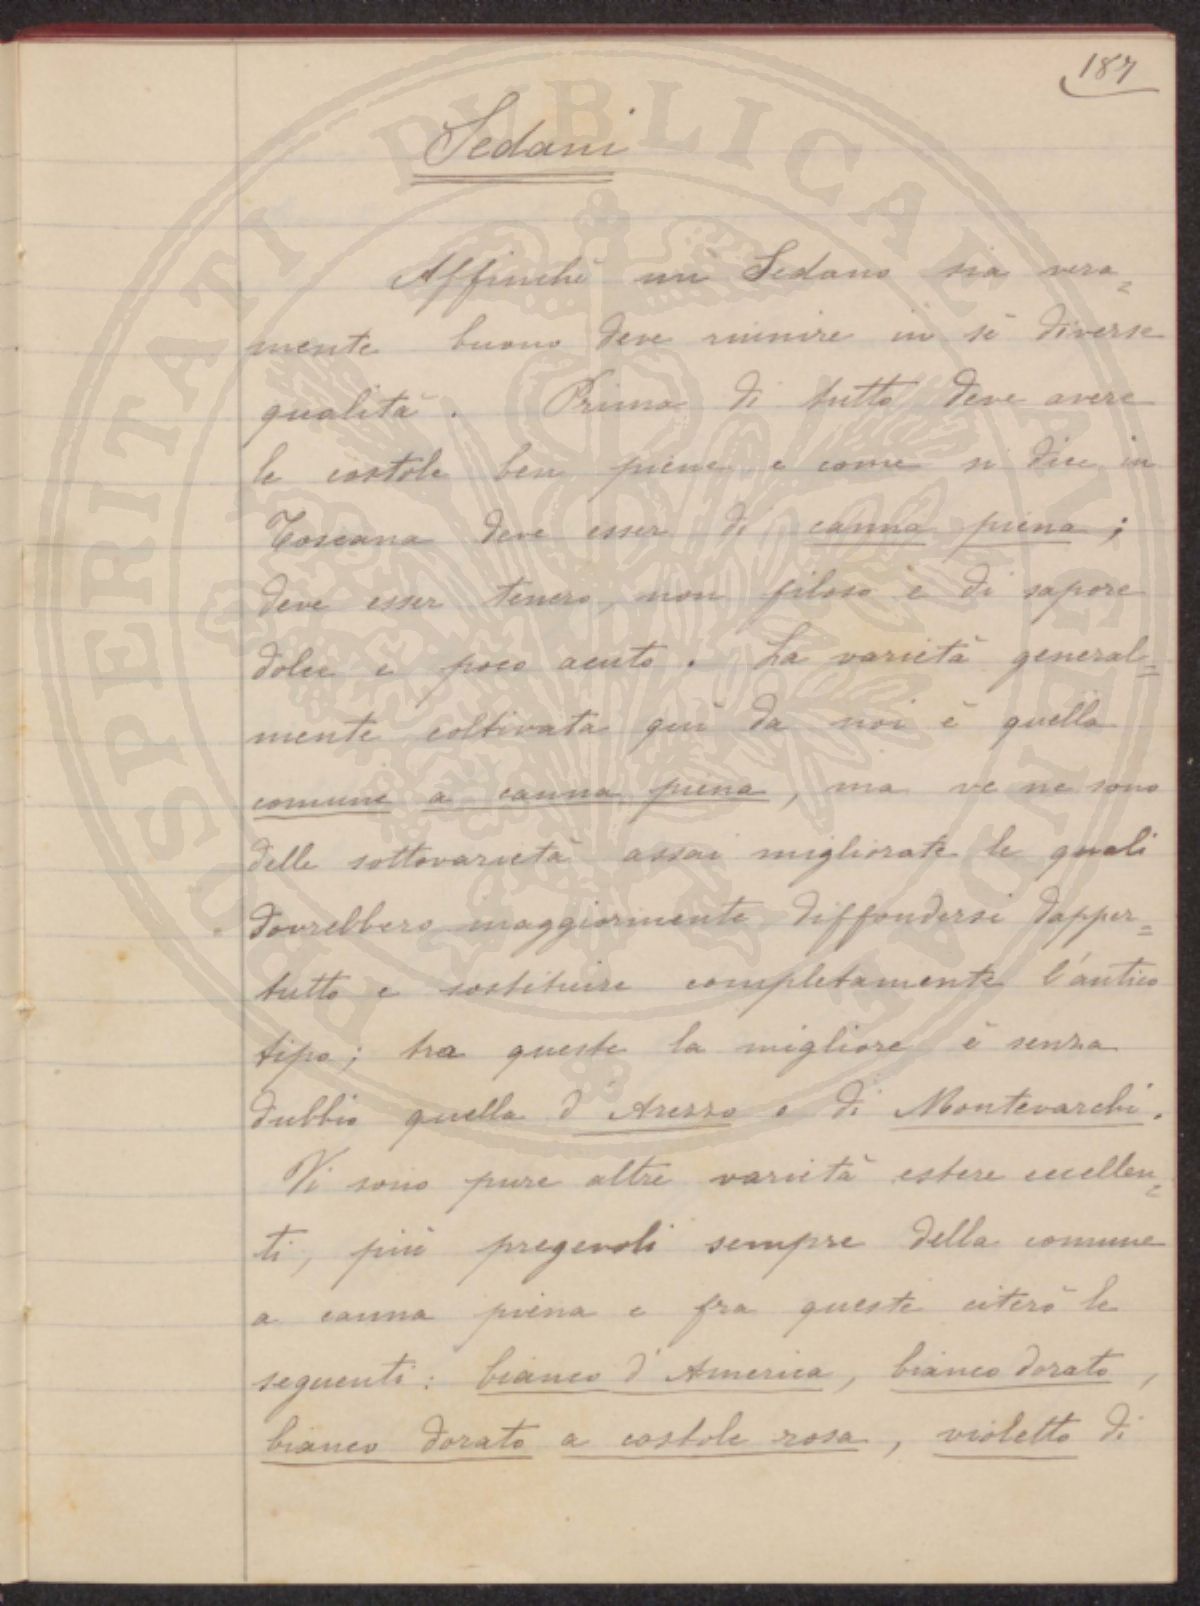 187
Sedani
Affinchè un Sedano sia vera=
mente buono deve riunire in sè diverse
qualità. Prima di tutto deve avere
le costole ben piene e come si dice in
Toscana deve esser di canna piena;
deve esser tenero, non filoso e di sapore
dolce e poco acuto. La varietà general=
mente coltivata quì da noi è quella
comune a canna piena, ma ve ne sono
delle sottovarietà assai migliorate le quali
dovrebbero maggiormente diffondersi dapper=
tutto e sostituire completamente l'antico
tipo; tra queste la migliore è senza
dubbio quella d'Arezzo o di Montevarchi.
Vi sono pure altre varietà estere eccellen=
ti, più pregevoli sempre della comune
a canna piena e fra queste citerò le
seguenti: bianco d'America, bianco dorato,
bianco dorato a costole rosa, violetto di
PROSPERITATI PVBLICAE AVGENDAE